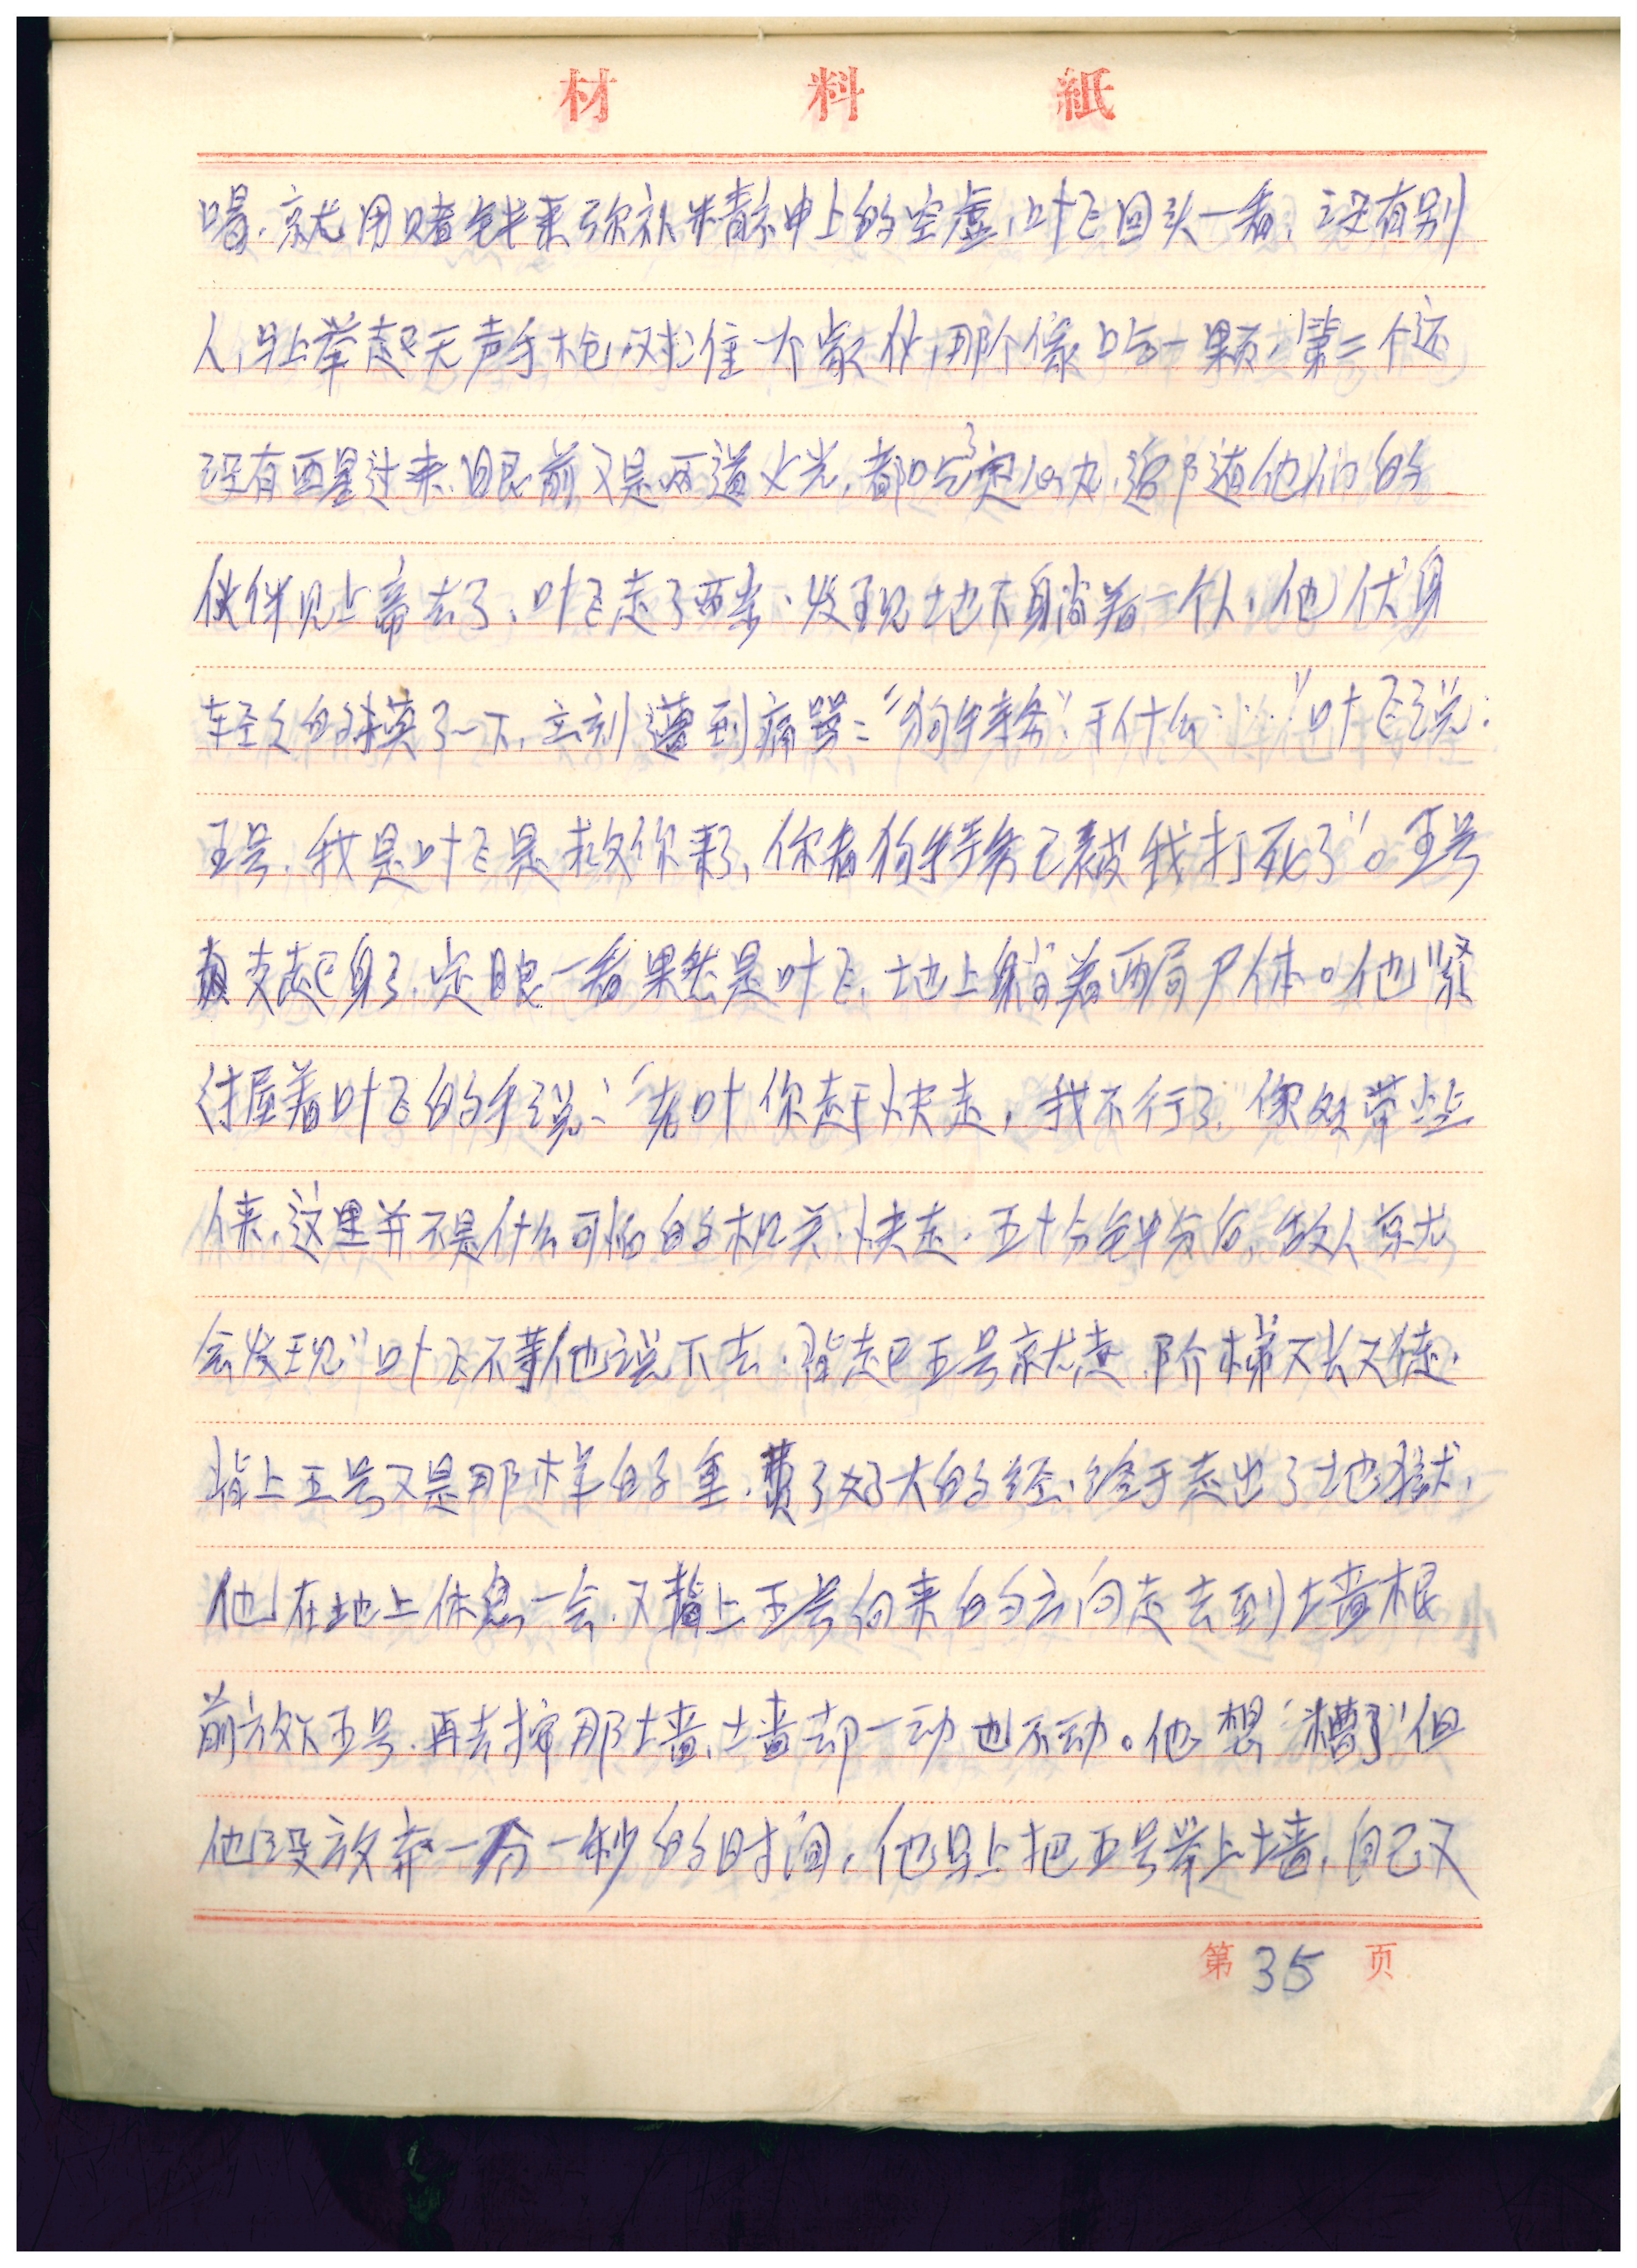 材料紙
喝.就用赌钱来弥补精神上的空虚,叶飞回头一看,没有别
人,马上举起无声手枪,对准大家伙,那个傢吃一颗,第二个还
没有醒过来.眼前又是两道火光,都吃了定心丸,追随他们的
伙伴见上帝去了.叶飞走了两步.发现地下躺着一个人,他伏身
轻轻的摸了一下,立刻遭到痛骂:“狗特务”干什么……”叶飞说:
五号.我是叶飞是救你来了,你看狗特务已被我打死了”。五号
支起身子.定眼一看果然是叶飞,地上躺着两局尸体。他紧
紧握着叶飞的手说:“老叶你赶快走,我不行了.
来,这里并不是什么可怕的机关.快走.五十分钟后,敌人就
会发现”叶飞不等他说下去.背起五号就走.阶梯又长又陡.
背上五号又是那样的重.费了好大的经.终于走出了地狱,
他在地上休息一会.又背上五号向来的方向走去到墙根
前放下五号.再去按那墙,墙却一动也不动。他想“糟了”但
他没放弃一分一秒的时间,他马上把五号举上墙,自己又
第35页